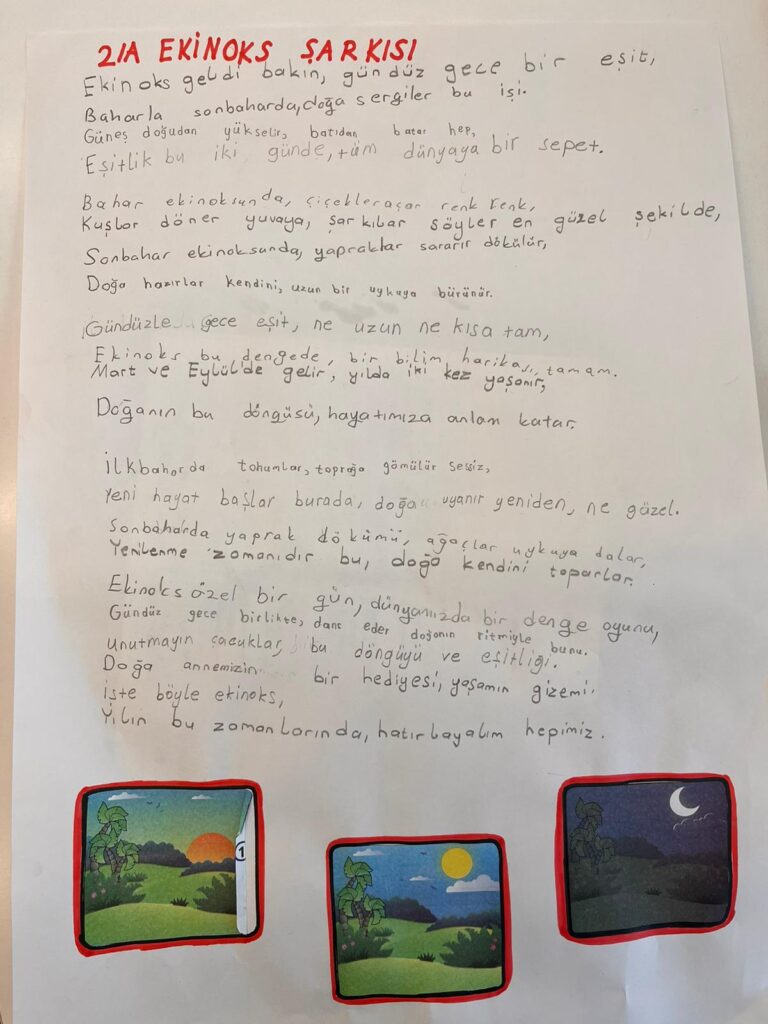 2/A EKİNOKS ŞARKISI
Ekinoks geldi bakın, gündüz gece bir eşit,
Baharla sonbaharda, doğa sergiler bu işi.
Güneş doğudan yükselir, batıdan batar hep,
Eşitlik bu iki günde, tüm dünyaya bir sepet.
Bahar ekinoksunda, çiçekler açar renk renk,
Kuşlar döner yuvaya, şarkılar söyler en güzel şekilde,
Sonbahar ekinoksunda, yapraklar sararır dökülür,
Doğa hazırlar kendini, uzun bir uykuya bürünür.
Gündüzle gece eşit, ne uzun ne kısa tam,
Ekinoks bu dengede, bir bilim harikası, tamam.
Mart ve Eylül'de gelir, yılda iki kez yaşanır,
Doğanın bu döngüsü, hayatımıza anlam katar.
İlkbaharda tohumlar, toprağa gömülür sessiz,
Yeni hayat başlar burada, doğa uyanır yeniden, ne güzel.
Sonbaharda yaprak dökümü, ağaçlar uykuya dalar,
Yenilenme zamanıdır bu, doğa kendini toparlar.
Ekinoks özel bir gün, dünyamızda bir denge oyunu,
Gündüz gece birlikte, dans eder doğanın ritmiyle bunu.
Unutmayın çocuklar, bu döngüyü ve eşitliği.
Doğa annemizin bir hediyesi, yaşamın gizemi.
İşte böyle ekinoks,
Yılın bu zamanlarında, hatırlayalım hepimiz.
1